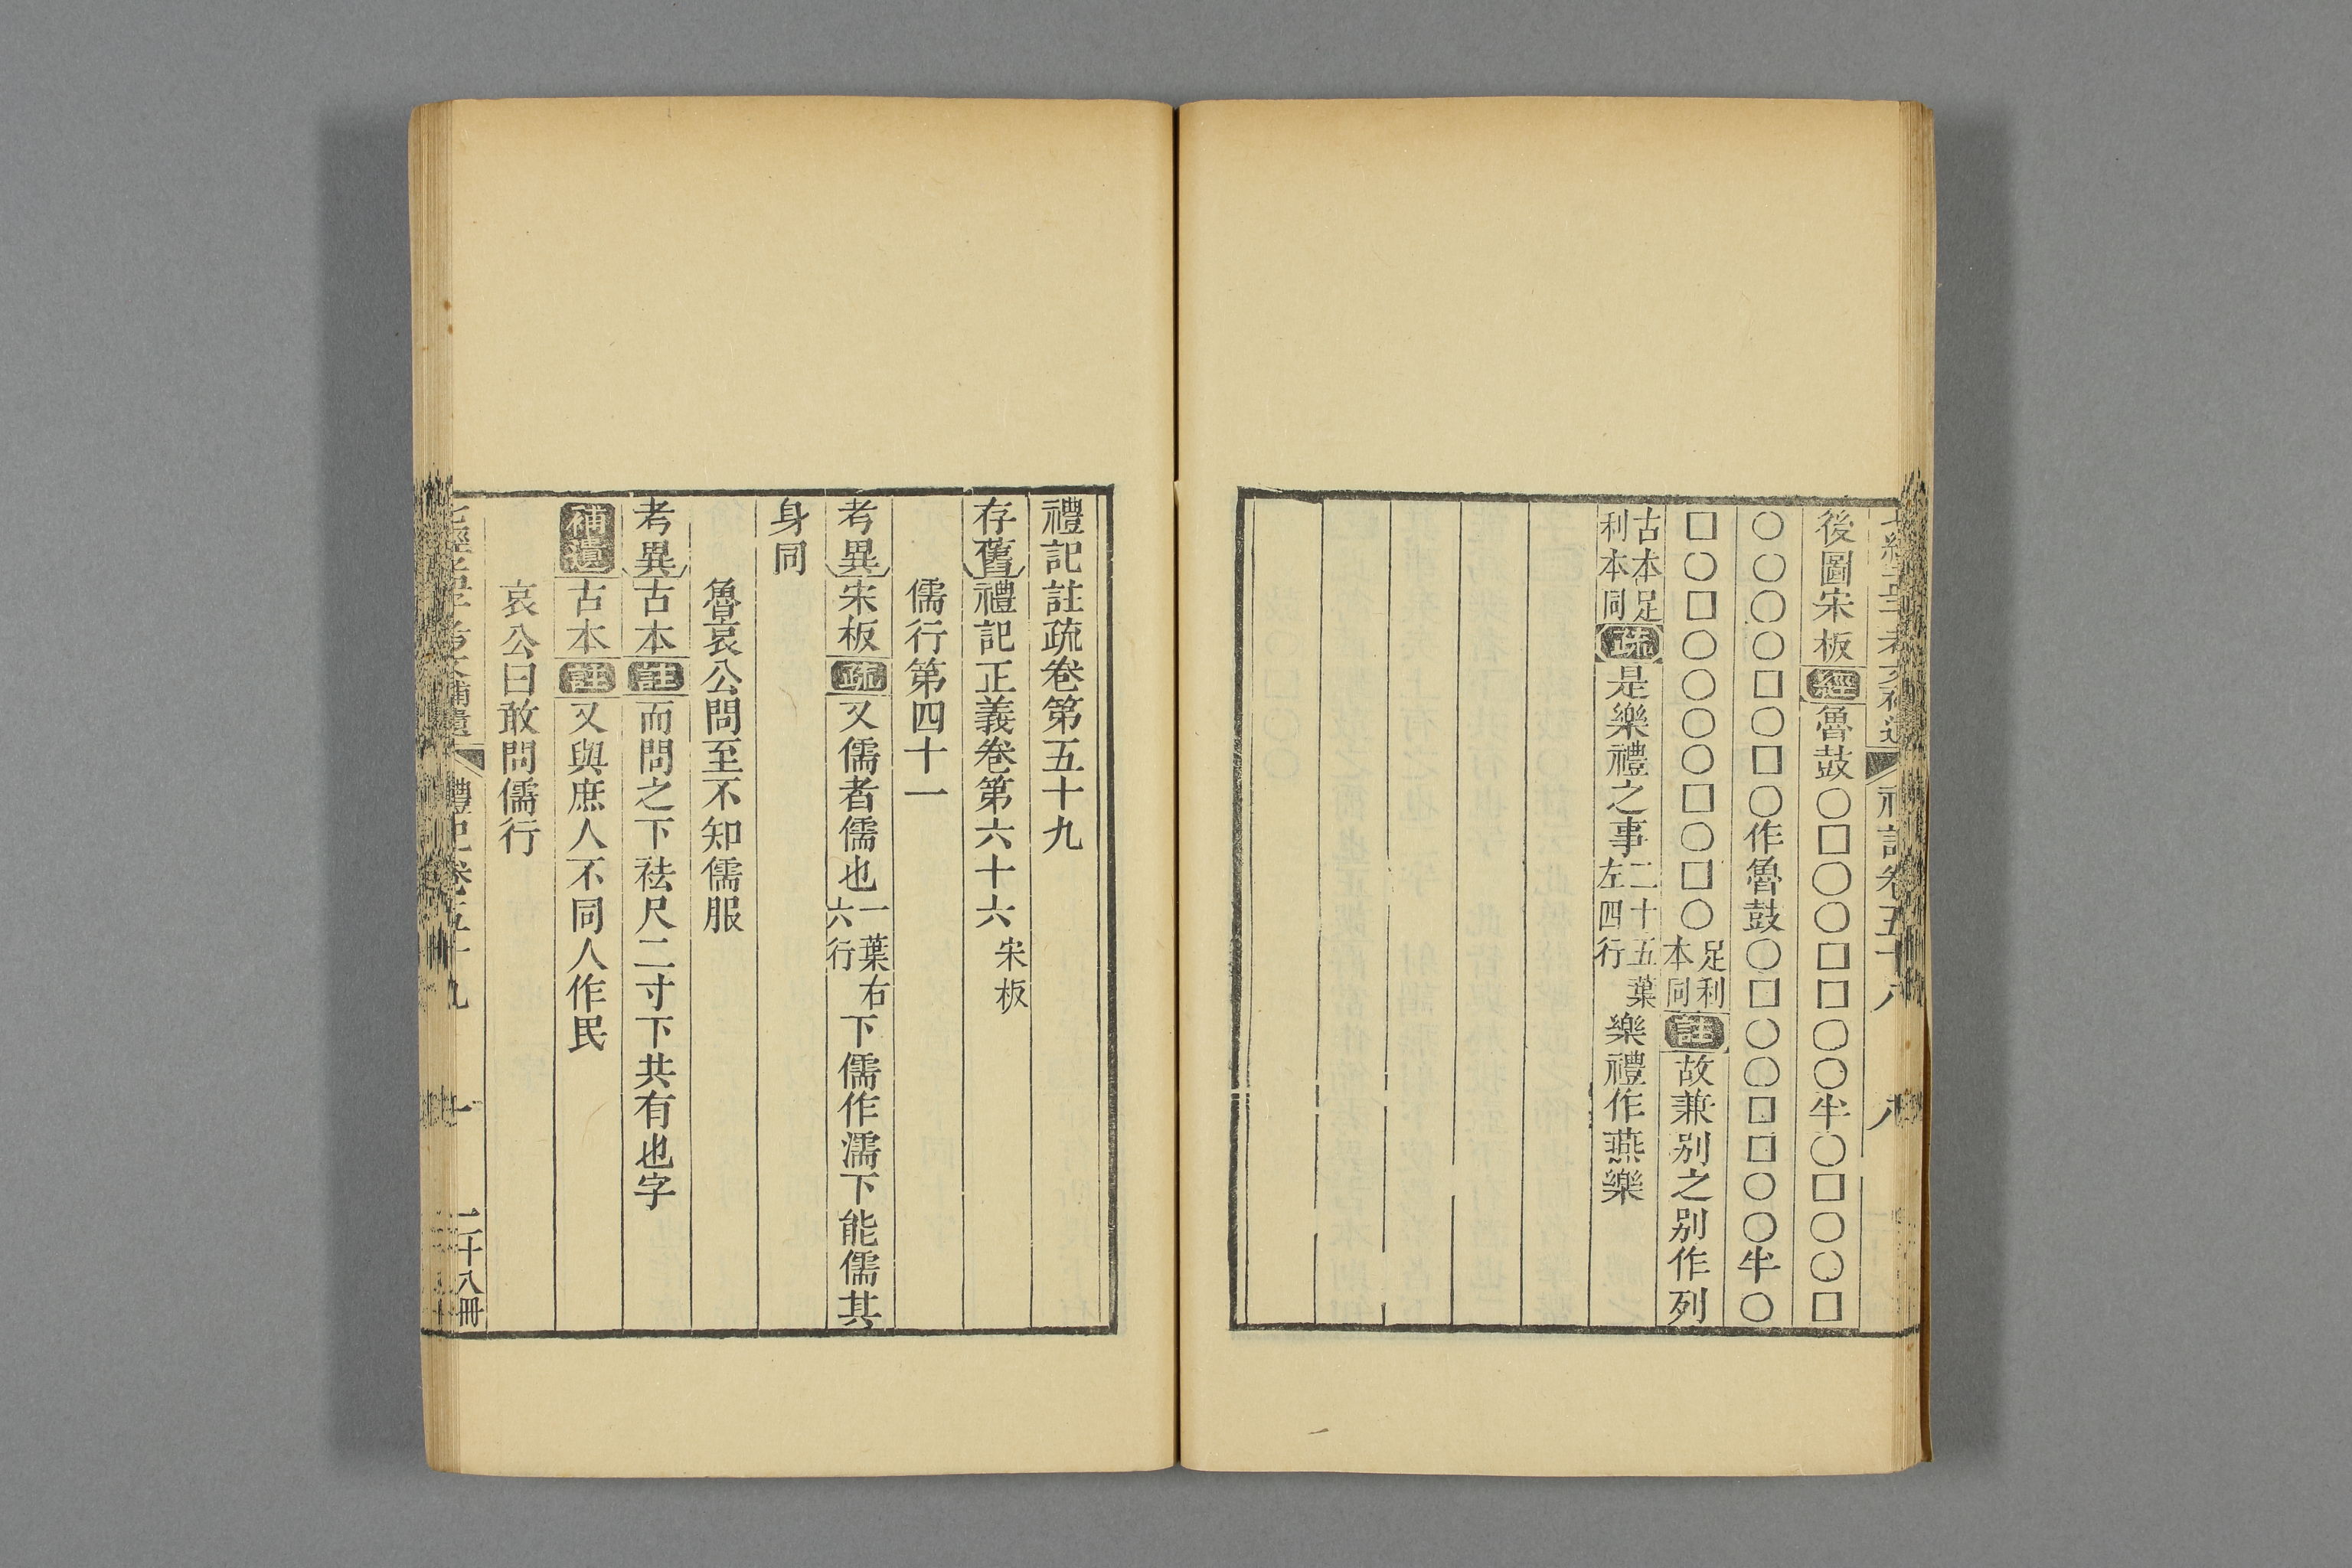 七經孟子考文補遺 禮記卷五十八 八
後圖宋板經魯鼓○□○○□□○○半○□○○□
○○○○□○□○作魯鼓○□○○□□○○半○
□○□○○○○□○□○足利本同註故兼别之别作列
古本足利本同疏是樂禮之事二十五葉左四行樂禮作燕樂
禮記註疏卷第五十九
存舊禮記正義卷第六十六宋板
儒行第四十一
考異宋板疏又儒者儒也一葉右六行下儒作濡下能儒其
身同
魯哀公問至不知儒服
考異古本註而問之下袪尺二寸下共有也字
補遺古本註又與庶人不同人作民
哀公曰敢問儒行
七經孟子考文補遺 禮記卷五十九 一 二十八冊